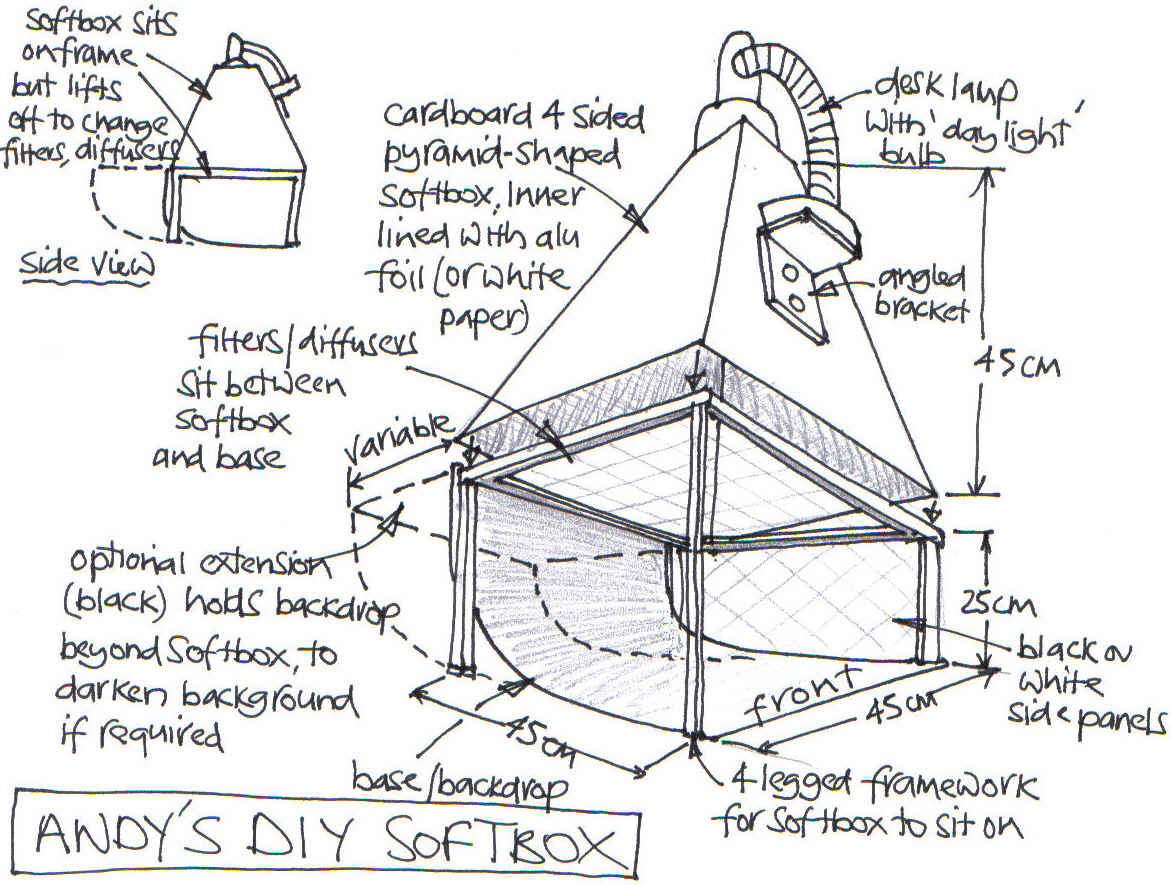 softbox sits
on frame
but lifts
off to change
filters, diffusers
side view
cardboard 4 sided
pyramid-shaped
softbox, inner
lined with alu
foil (or white
paper)
desk lamp
with 'daylight'
bulb
angled
bracket
45cm
filters/diffusers
sit between
softbox
and base
variable
optional extension
(black) holds backdrop
beyond softbox, to
darken background
if required
25cm
black or
white
side panels
front
45cm
45cm
base/backdrop
4 legged framework
for softbox to sit on
ANDY'S DIY SOFTBOX